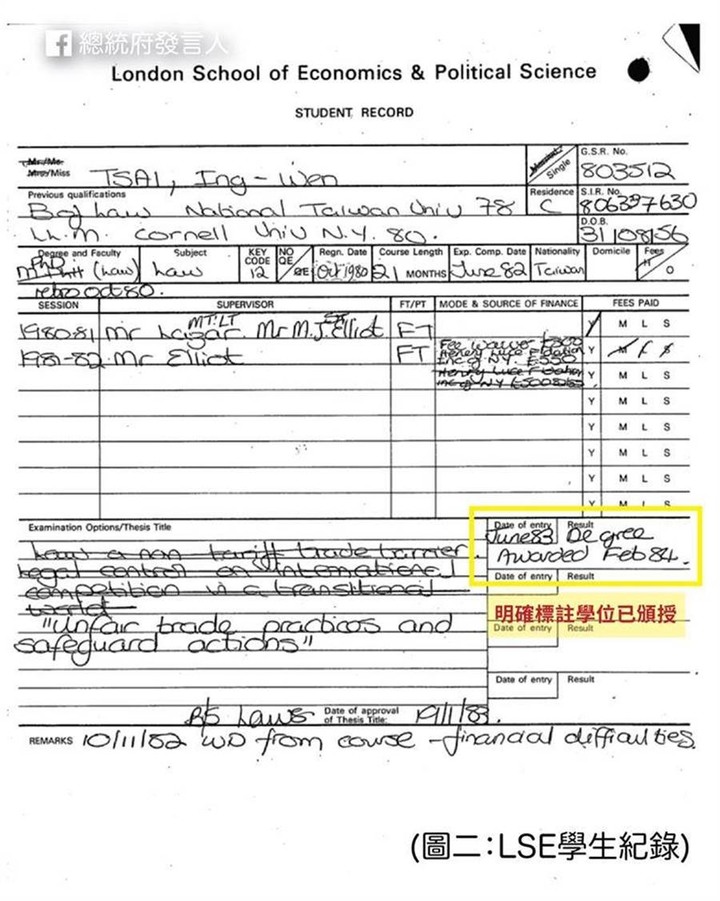 總統府發言人
London School of Economics & Political Science
STUDENT RECORD
Mr/Ms.
Mrs/Miss TSAI, Ing-Wen
Single
G.S.R. No.
803512
Previous qualifications
Residence
C
S.I.R. No.
806397630
B of Law National Taiwan Univ 78
LL.M. Cornell Univ N.Y. 80.
D.O.B.
31108156
Degree and Faculty Subject KEY CODE NO QE Regn. Date Course Length Exp. Comp. Date Nationality Domicile Fees
PhD
(Law) Law 12 QE Oct 1980 21 MONTHS June 82 Taiwan H O
retro oct 80.
SESSION SUPERVISOR FT/PT MODE & SOURCE OF FINANCE FEES PAID
MT:LT
1980-81 Mr Lazar. Mr M.J. Elliot FT Y M L S
Fee waiver £500
1981-82 Mr Elliot FT Y M L S
Y M L S
Y M L S
Y M L S
Y M L S
Y M L S
Y M L S
Examination Options/Thesis Title
Date of entry Result
June 83 Degree
Awarded Feb 84.
Law a non tariff trade barrier.
Legal control on international
competition in a transitional
world
Date of entry Result
明確標註學位已頒授
"Unfair trade practices and
safeguard actions"
Date of entry Result
Date of entry Result
Laws Date of approval of Thesis Title: 19/1/83.
REMARKS 10/11/82 WD from course - financial difficulties.
(圖二:LSE學生紀錄)